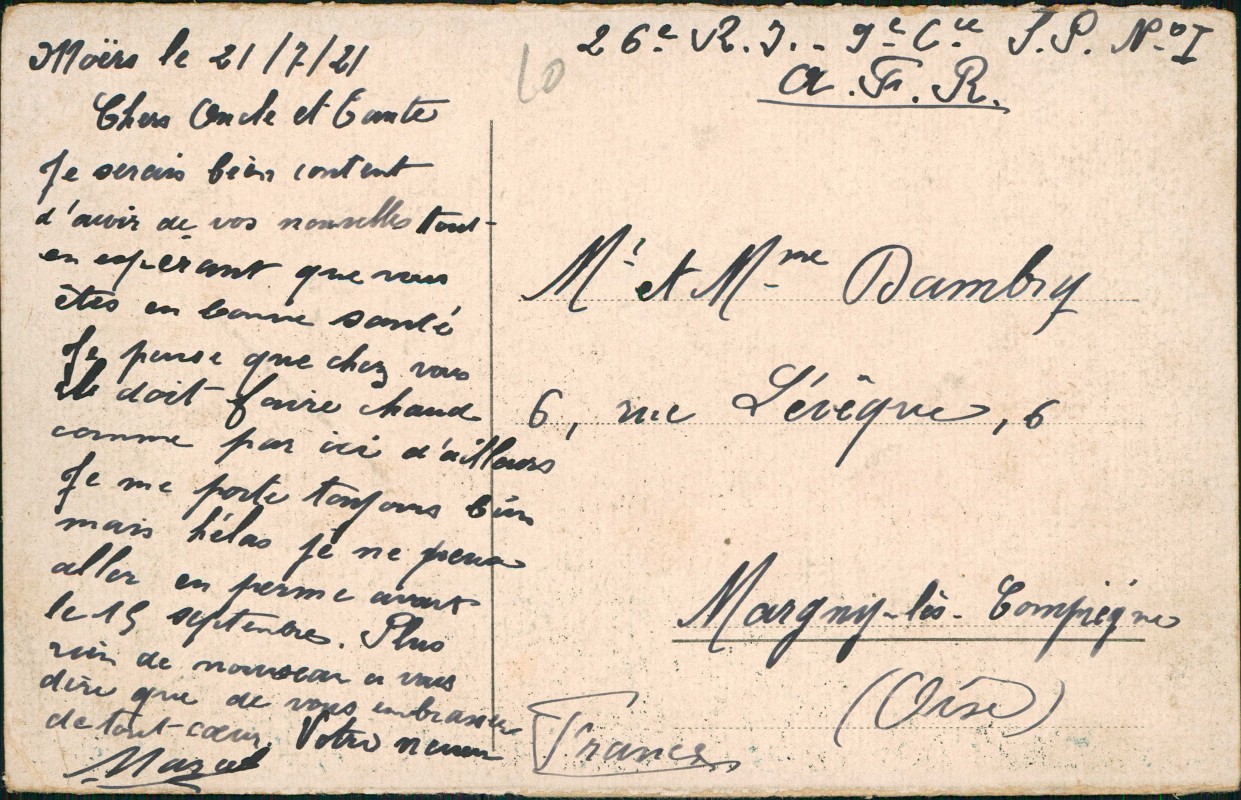 Moërs le 21/7/21
Chers Oncle et Tante
Je serais bien content
d'avoir de vos nouvelles tout-
en espérant que vous
êtes en bonne santé
Je pense que chez vous
il doit faire chaud
comme par ici d'ailleurs
Je me porte toujours bien
mais hélas je ne peux
aller en perme avant
le 15 septembre. Plus
rien de nouveau a vous
dire que de vous embrasser
de tout cœur. Votre neveu
Marcel
10
26e R.I. - 9e Cie S.P. No I
A.F.R.
Mr et Mme Dambry
6, rue Lévêque, 6
Margny-lès-Compiègne
(Oise)
France